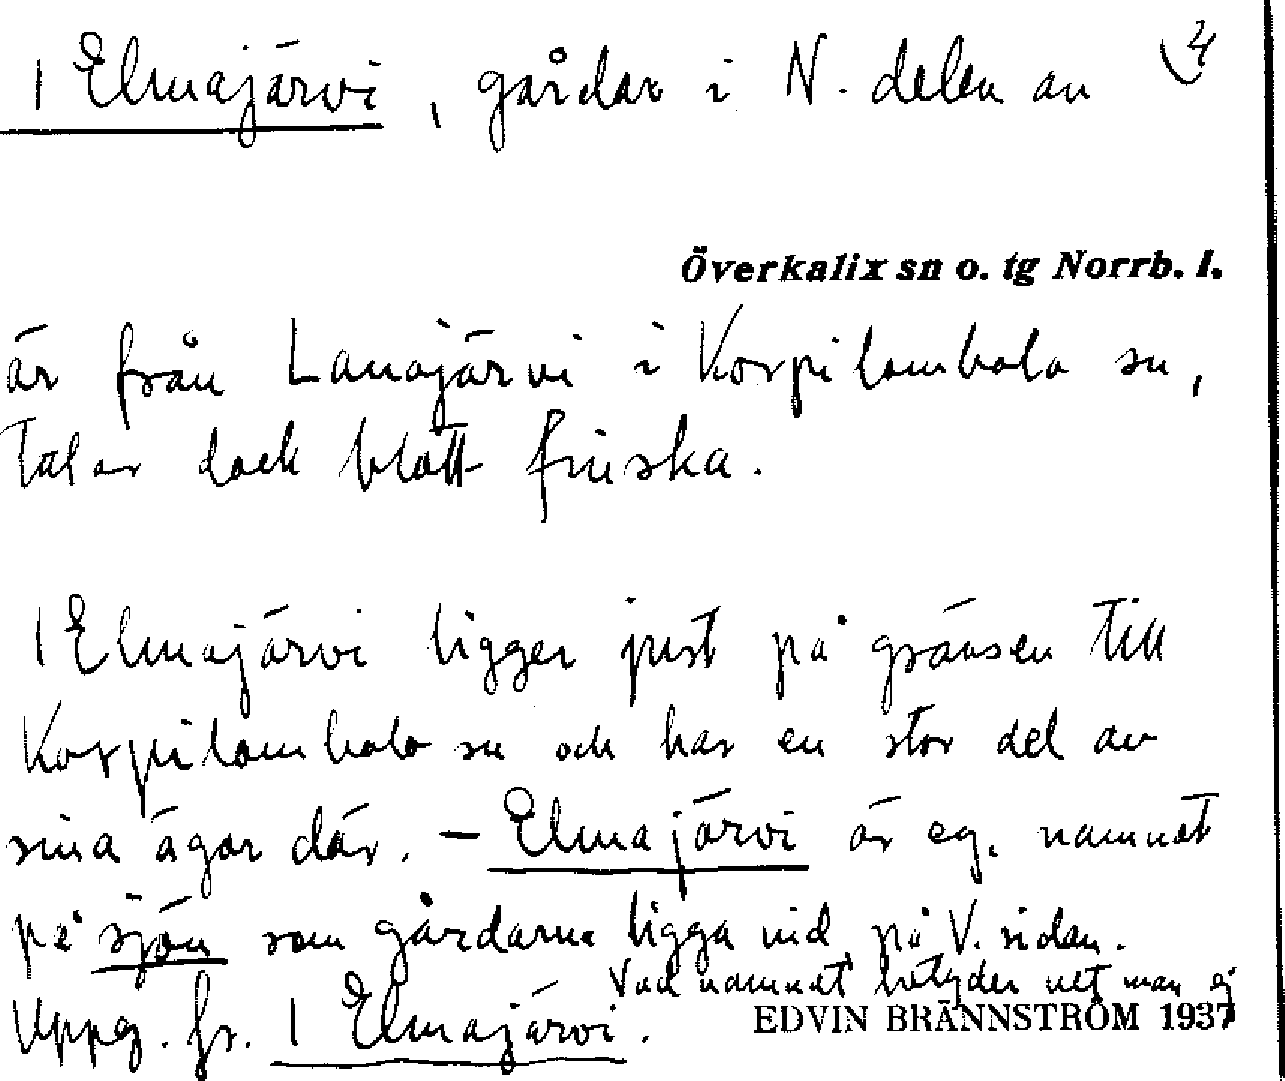 1 Elmajärvi, gårdar i N. delen av
4
Överkalix sn o. tg Norrb. l.
är från Lanajärvi i Korpilombolo sn,
Talar dock blott finska.
1 Elmajärvi ligger just på gränsen till
Korpilombolo sn och har en stor del av
sina ägor där. – Elmajärvi är eg. namnet
på sjön som gårdarne ligga vid, på V. sidan.
Vad namnet betyder vet man ej
Uppg. fr. 1 Elmajärvi.
EDVIN BRÄNNSTRÖM 1937